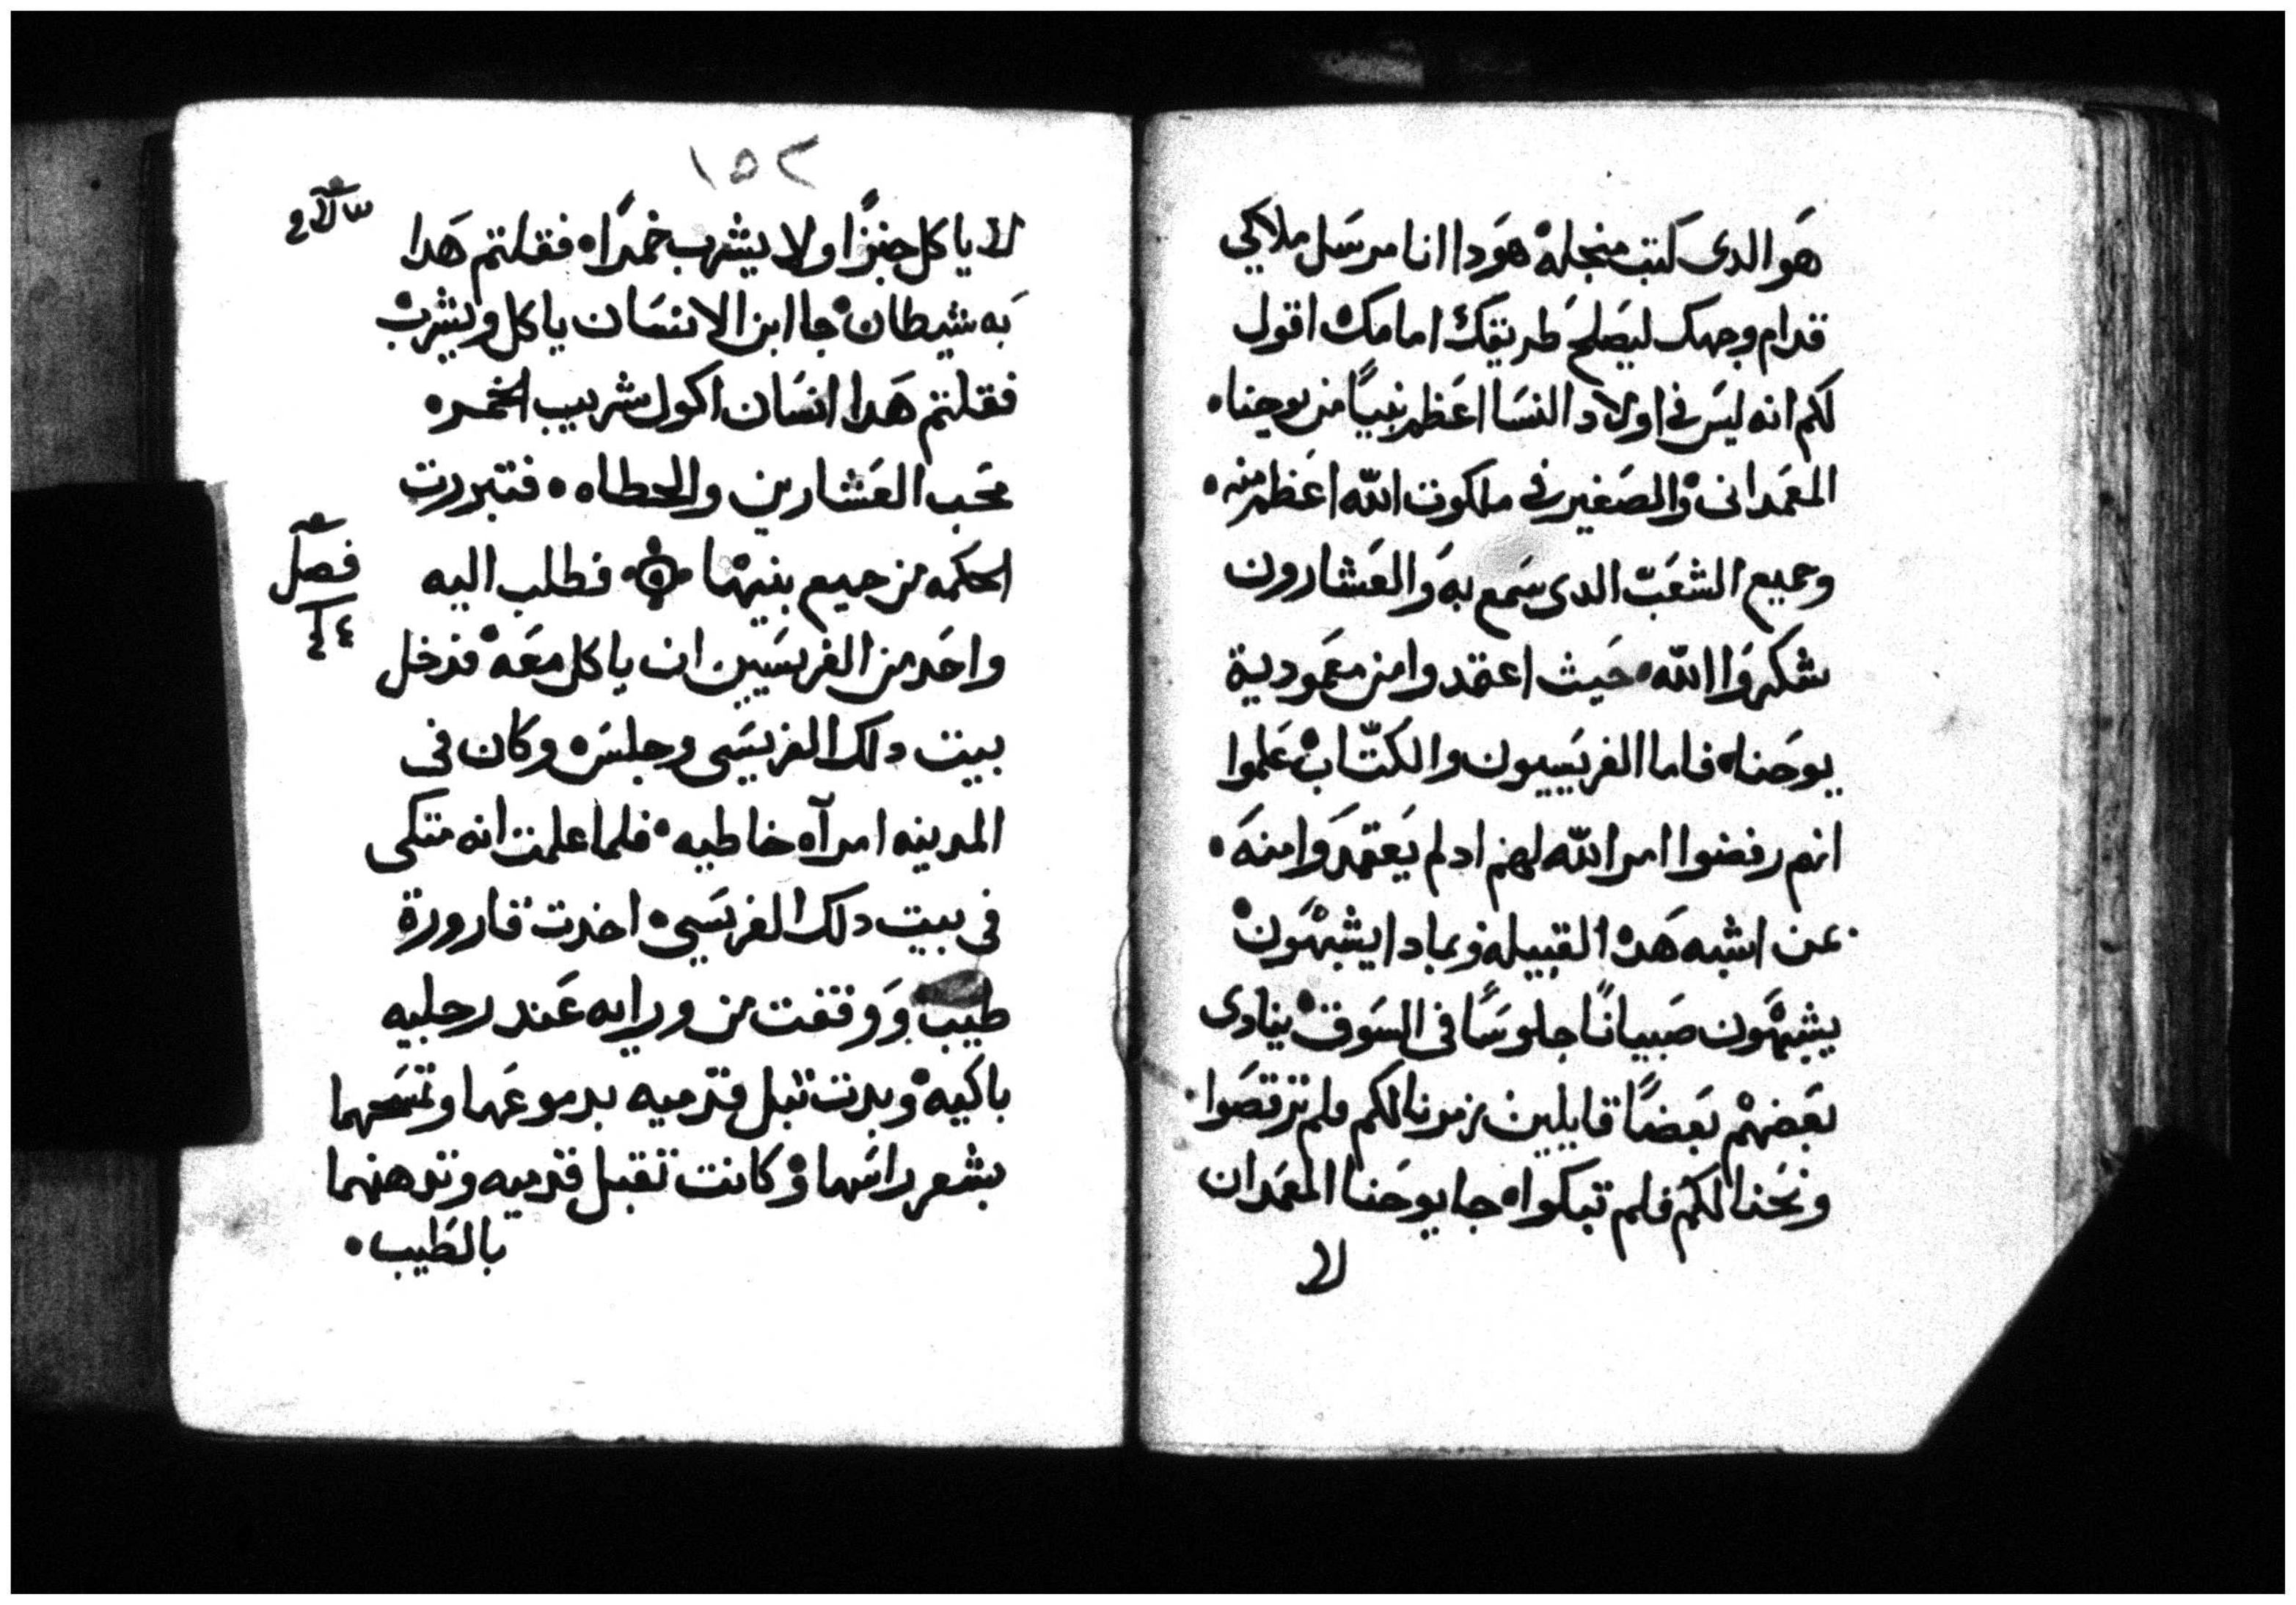 هو الدى كتب منجله هودا انا مرسل ملاكي
قدام وجهك ليصلح طريقك امامك اقول
لكم انه ليس في اولاد النسا اعظم نبيًا من يوحنا
المعمدانى والصغير في ملكوت الله اعظم منه
وجميع الشعب الدى سمع به والعشارون
شكروا الله حيث اعتمدوا من معمودية
يوحنا فاما الفريسيون والكتّاب علموا
انهم رفضوا امر الله لهم ادلم يعتمدوا منه
عن اشبه هده القبيله وبمادا يشبهون
يشبهون صبيانًا جلوسًا في السوق ينادى
بعضهم بعضًا قايلين زمرنا لكم فلم ترقصوا
ونحنا لكم فلم تبكوا جا يوحنا المعمدان
لا
١٥٢
لا ياكل خبزًا ولا يشرب خمرًا فقلتم هدا
به شيطان جا ابن الانسان ياكل ويشرب
فقلتم هدا انسان اكول شريب الخمر
محب العشارين والخطاه فتبررت
الحكمه من جميع بنيها فطلب اليه
فصل
٤٤
واحد من الفريسيين ان ياكل معه فدخل
بيت دلك الفريسى وجلس وكان في
المدينه امرآه خاطيه فلما علمت انه متكى
في بيت دلك الفريسي اخدت قارورة
طيب ووقفت من ورايه عند رجليه
باكيه وبدت تبل قدميه بدموعها وتمسحهما
بشعر راسها وكانت تقبل قدميه وتدهنهما
بالطيب